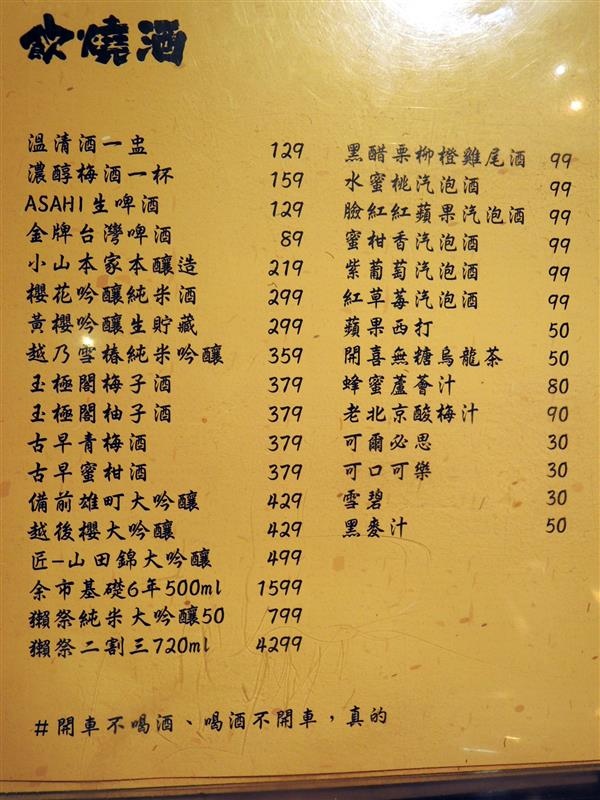 飲燒酒
溫清酒一盅 129
濃醇梅酒一杯 159
ASAHI生啤酒 129
金牌台灣啤酒 89
小山本家本釀造 219
櫻花吟釀純米酒 299
黃櫻吟釀生貯藏 299
越乃雪椿純米吟釀 359
玉極閣梅子酒 379
玉極閣柚子酒 379
古早青梅酒 379
古早蜜柑酒 379
備前雄町大吟釀 429
越後櫻大吟釀 429
匠-山田錦大吟釀 499
余市基礎6年500ml 1599
獺祭純米大吟釀50 799
獺祭二割三720ml 4299
黑醋栗柳橙雞尾酒 99
水蜜桃汽泡酒 99
臉紅紅蘋果汽泡酒 99
蜜柑香汽泡酒 99
紫葡萄汽泡酒 99
紅草莓汽泡酒 99
蘋果西打 50
開喜無糖烏龍茶 50
蜂蜜蘆薈汁 80
老北京酸梅汁 90
可爾必思 30
可口可樂 30
雪碧 30
黑麥汁 50
#開車不喝酒、喝酒不開車，真的